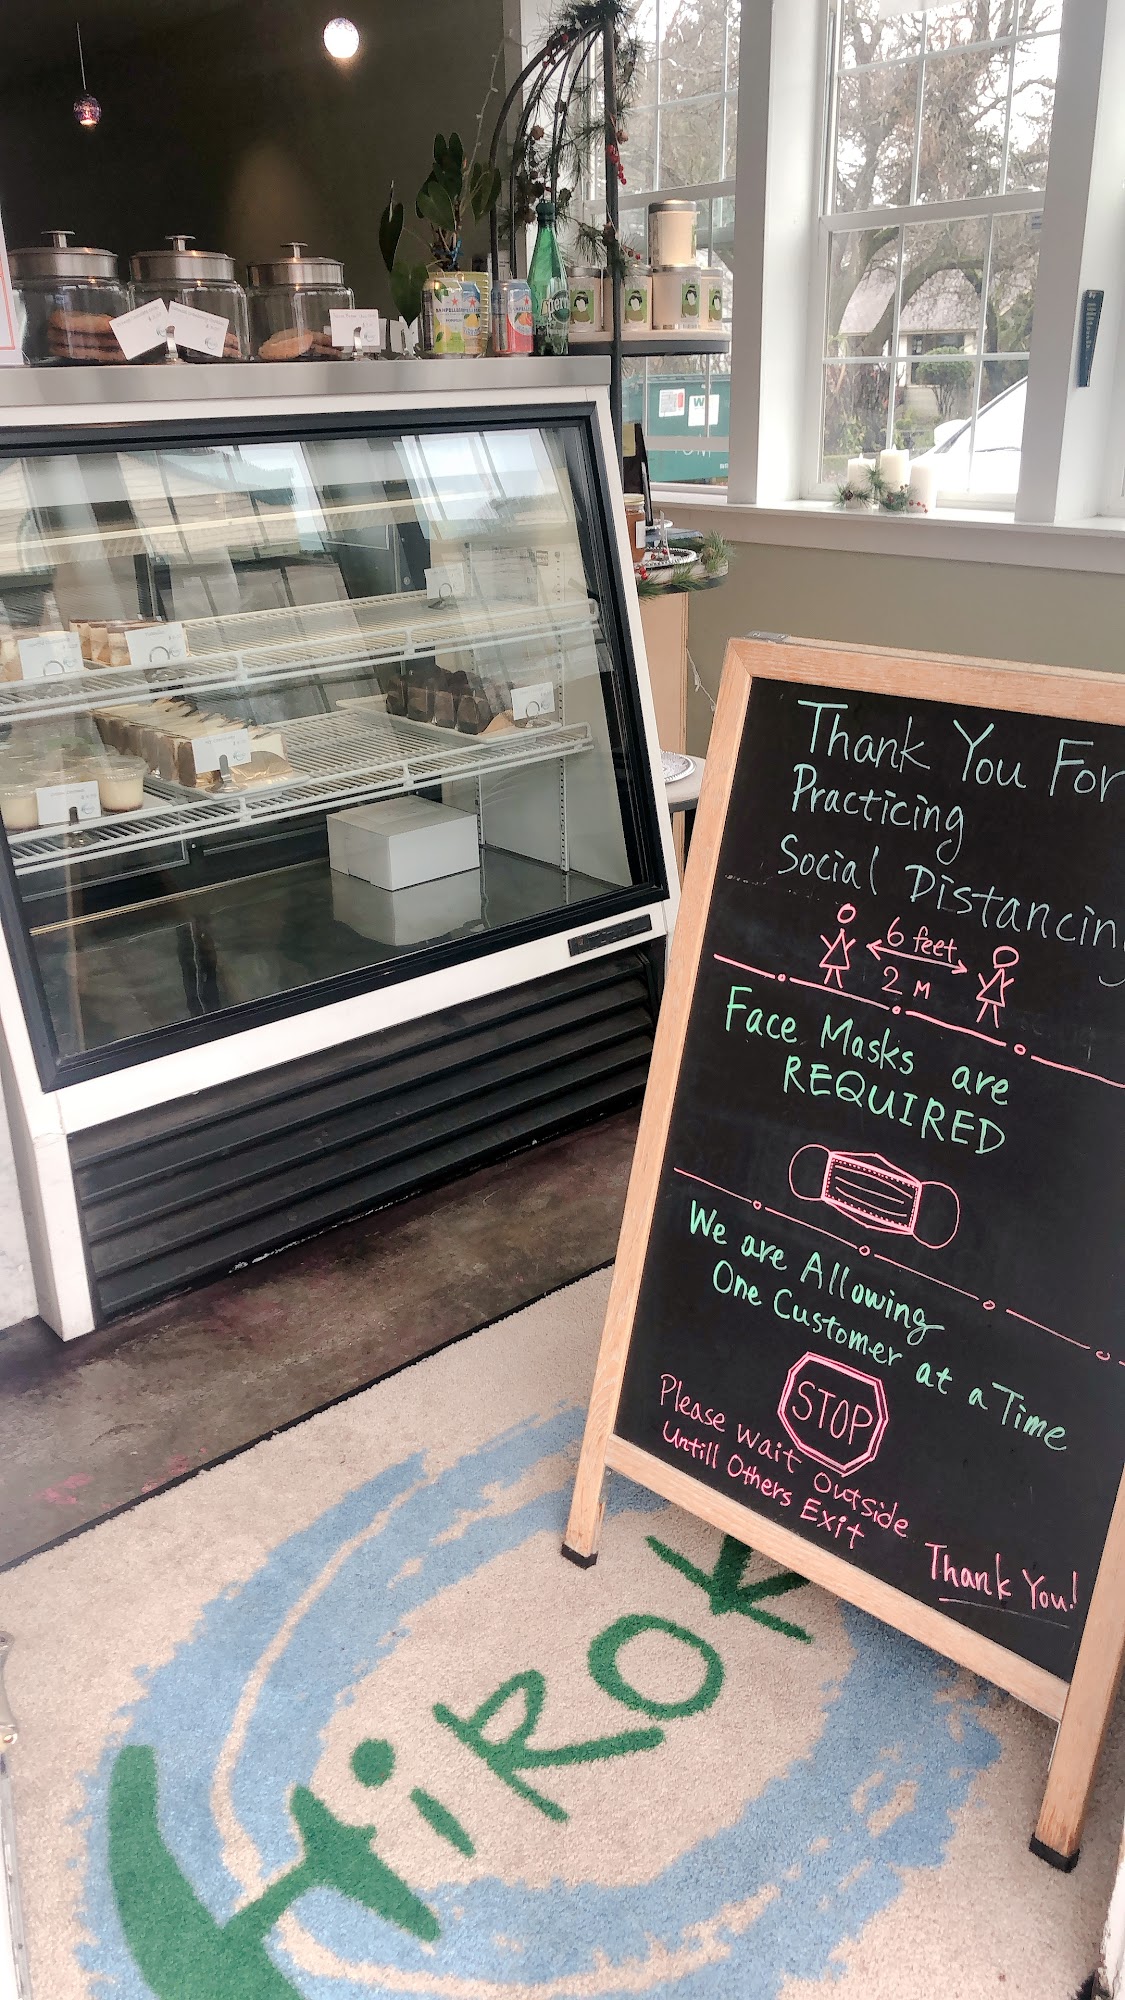 SANPELLEGRINO
Perrier
WM
Thank You For
Practicing
Social Distancing
6 feet
2 M
Face Masks are
REQUIRED
We are Allowing
One Customer at a Time
STOP
Please wait outside
Untill Others Exit
Thank You!
HiROK